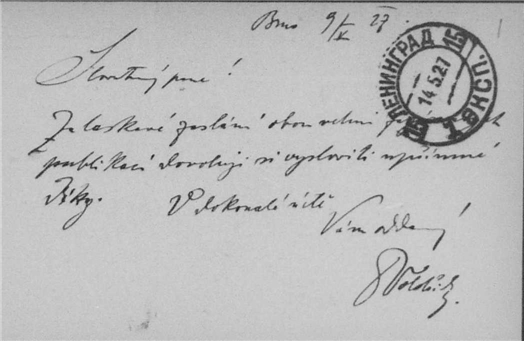 Brno 9/V 27.
Slovutný pane!
Za laskavé zaslání obou velmi
publikací dovoluji si vysloviti upřímné
díky. V dokonalé úctě
Vám oddaný
ЛЕНИНГРАД
14.5.27